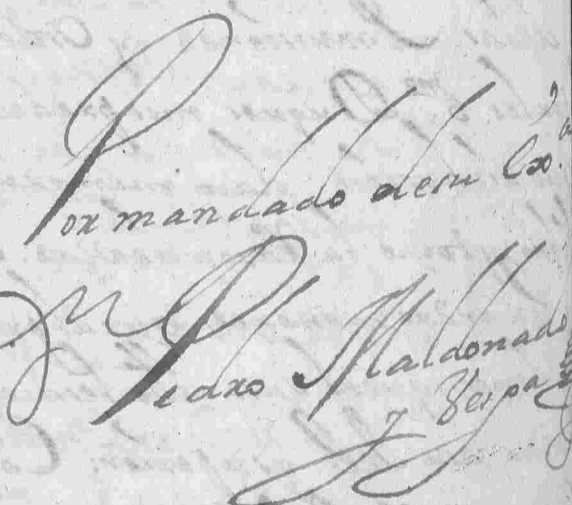 Por mandado de su Exª.
Dn Pedro Maldonado
y